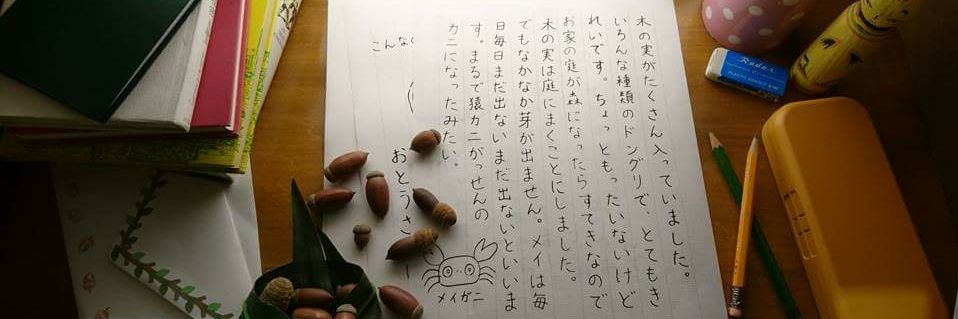 木の実がたくさん入っていました。
いろんな種類のドングリで、とてもき
れいです。ちょっともったいないけど
お家の庭が森になったらすてきなので
木の実は庭にまくことにしました。
でもなかなか芽が出ません。メイは毎
日毎日まだ出ないまだ出ないといいま
す。まるで猿カニがっせんの
カニになったみたい。
こんなく
おとうさ
メイガニ
Radar
PLASTIC ERASER